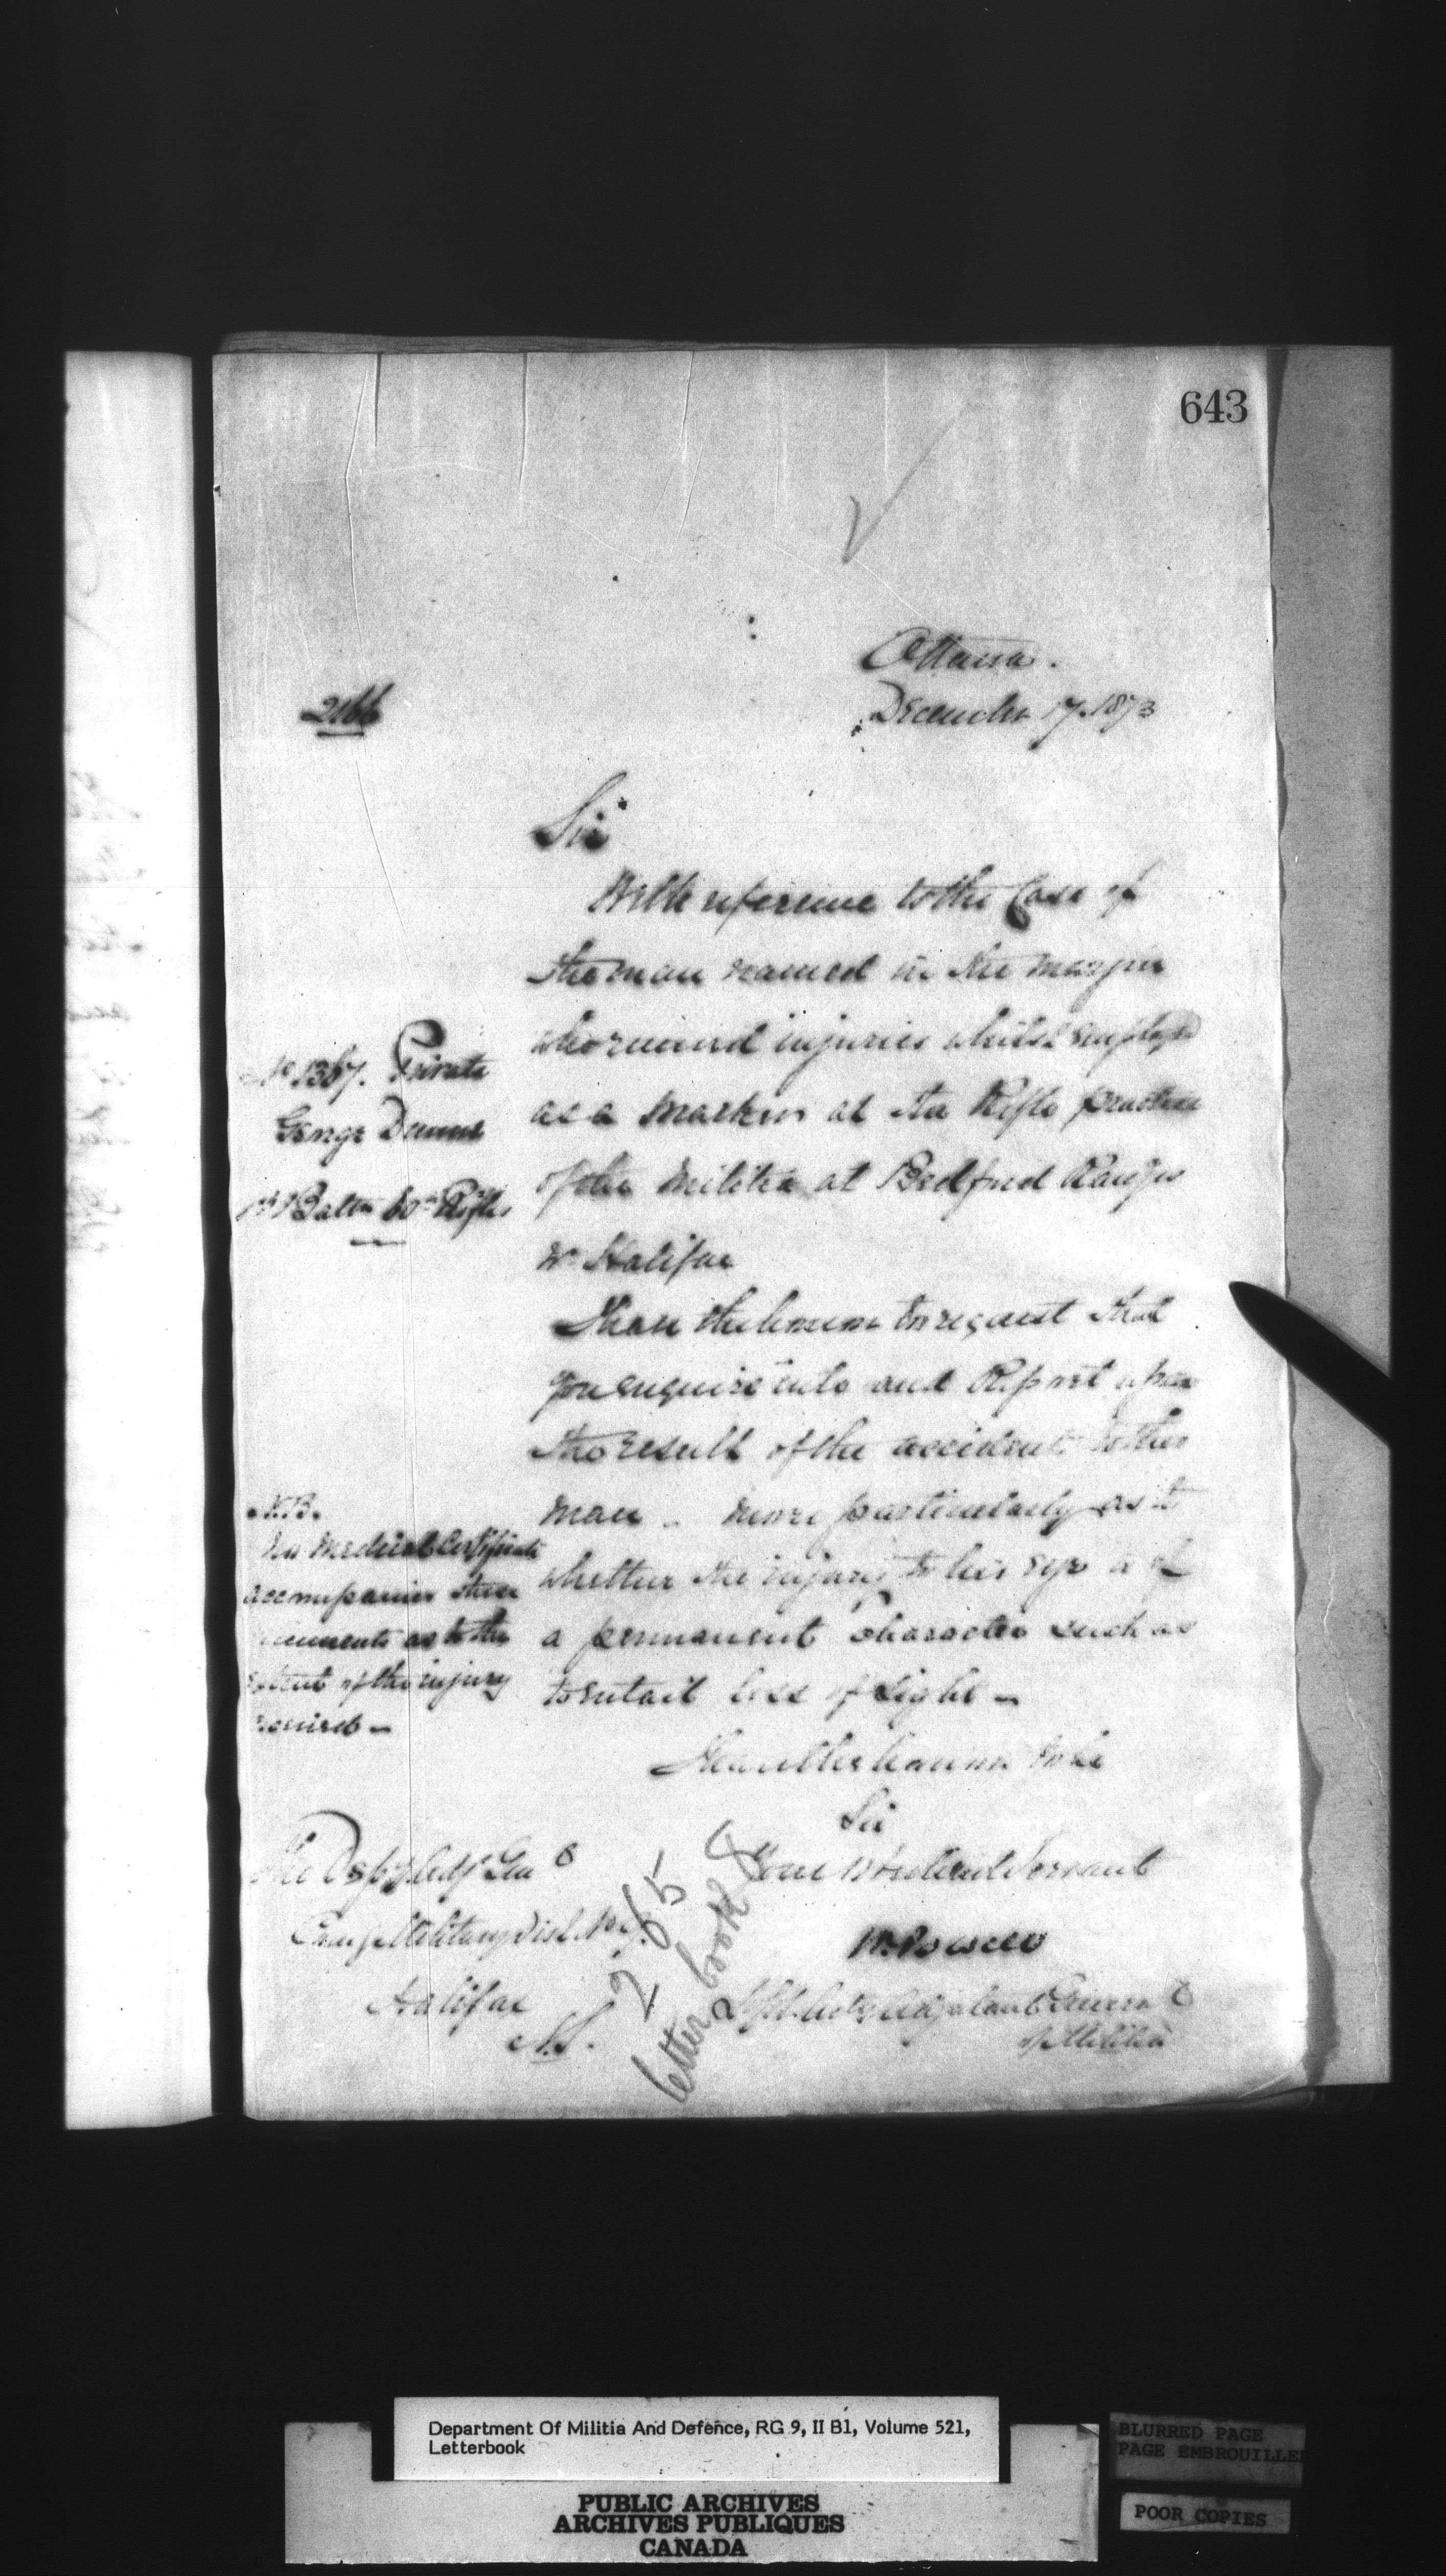 643
Ottawa.
December 17. 1873
2166
Sir
With reference to the Case of
the man named in the margin
who received injuries whilst employed
as a marker at the Rifle practice
of the Militia at Bedford Ranges
Nr Halifax
No 1367. Private
George
1st Battn 60th Rifles
I have the honor to request that
you enquire into and Report upon
the result of the accident to this
man - more particularly as to
whether the injury to his eye is of
a permanent Character such as
to entail loss of sight -
N.B.
No Medical Certificate
accompanies these
documents as to the
extent of the injury
received -
I have the honor to be
Sir
Your Obedient Servant
W. Powell
Adjutant General
of Militia
The Depy Adjt Genl
Comg Military Dist. No
Halifax
N.S.
265
letter book 8
Department Of Militia And Defence, RG 9, II B1, Volume 521,
Letterbook
PUBLIC ARCHIVES
ARCHIVES PUBLIQUES
CANADA
BLURRED PAGE
PAGE EMBROUILLE
POOR COPIES